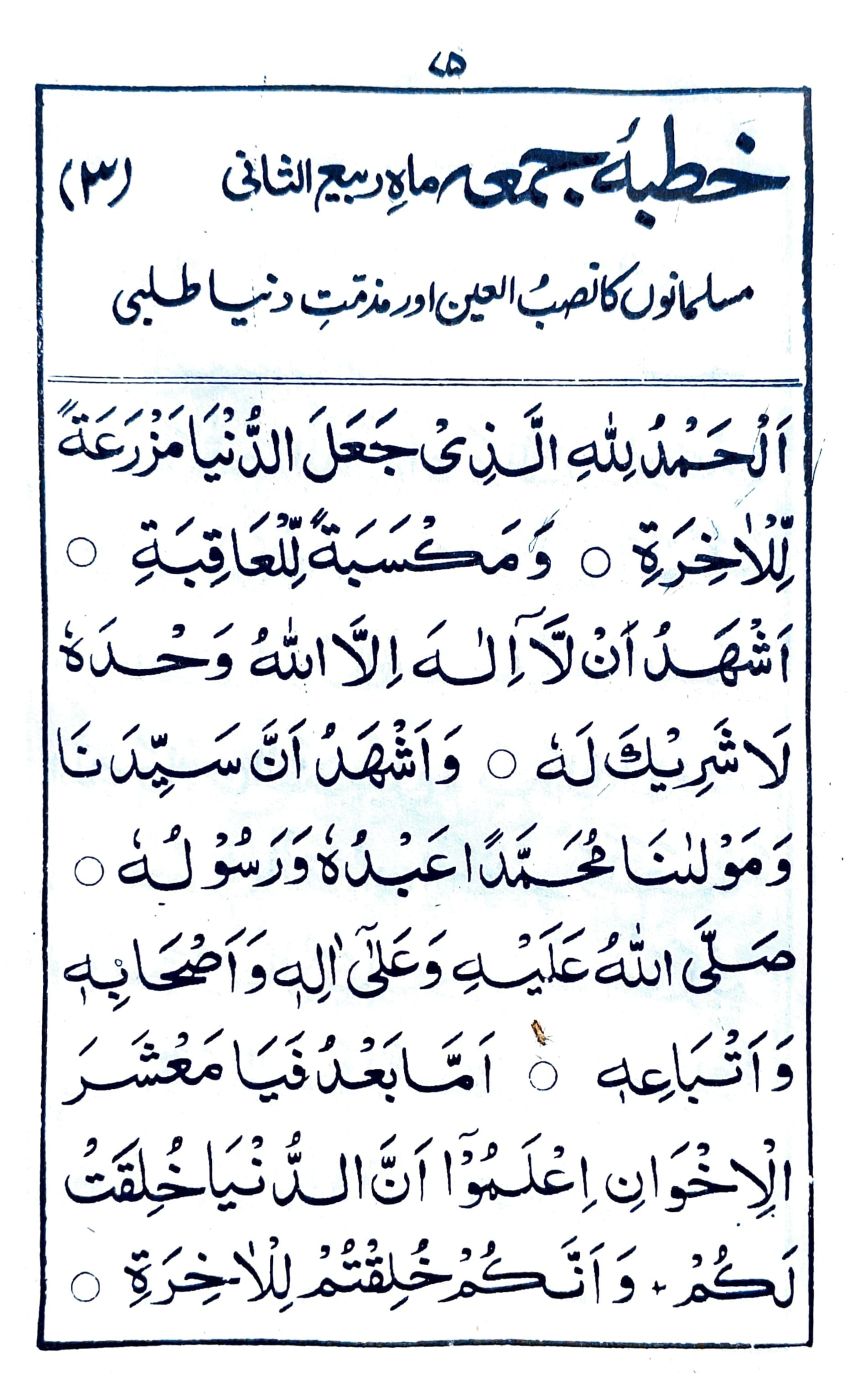 ۷۵
خطبۂ جمعہ ماہِ ربیع الثانی (۳)
مسلمانوں کا نصبُ العین اور مذمّتِ دنیا طلبی
اَلْحَمْدُ لِلّٰهِ الَّذِیْ جَعَلَ الدُّنْیَا مَزْرَعَةً
لِّلْاٰخِرَةِ ○ وَ مَکْسَبَةً لِّلْعَاقِبَةِ ○
اَشْهَدُ اَنْ لَّاۤ اِلٰهَ اِلَّا اللّٰهُ وَحْدَهٗ
لَا شَرِیْكَ لَهٗ ○ وَاَشْهَدُ اَنَّ سَیِّدَنَا
وَمَوْلٰىنَا مُحَمَّدًا عَبْدُهٗ وَرَسُوْلُهٗ ○
صَلَّی اللّٰهُ عَلَیْهِ وَعَلٰۤی اٰلِهٖ وَاَصْحَابِهٖ
وَاَتْبَاعِهٖ ○ اَمَّا بَعْدُ فَیَا مَعْشَرَ
الْاِخْوَانِ اِعْلَمُوْۤا اَنَّ الدُّنْیَا خُلِقَتْ
لَکُمْ ۔ وَاَنَّکُمْ خُلِقْتُمْ لِلْاٰخِرَةِ ○